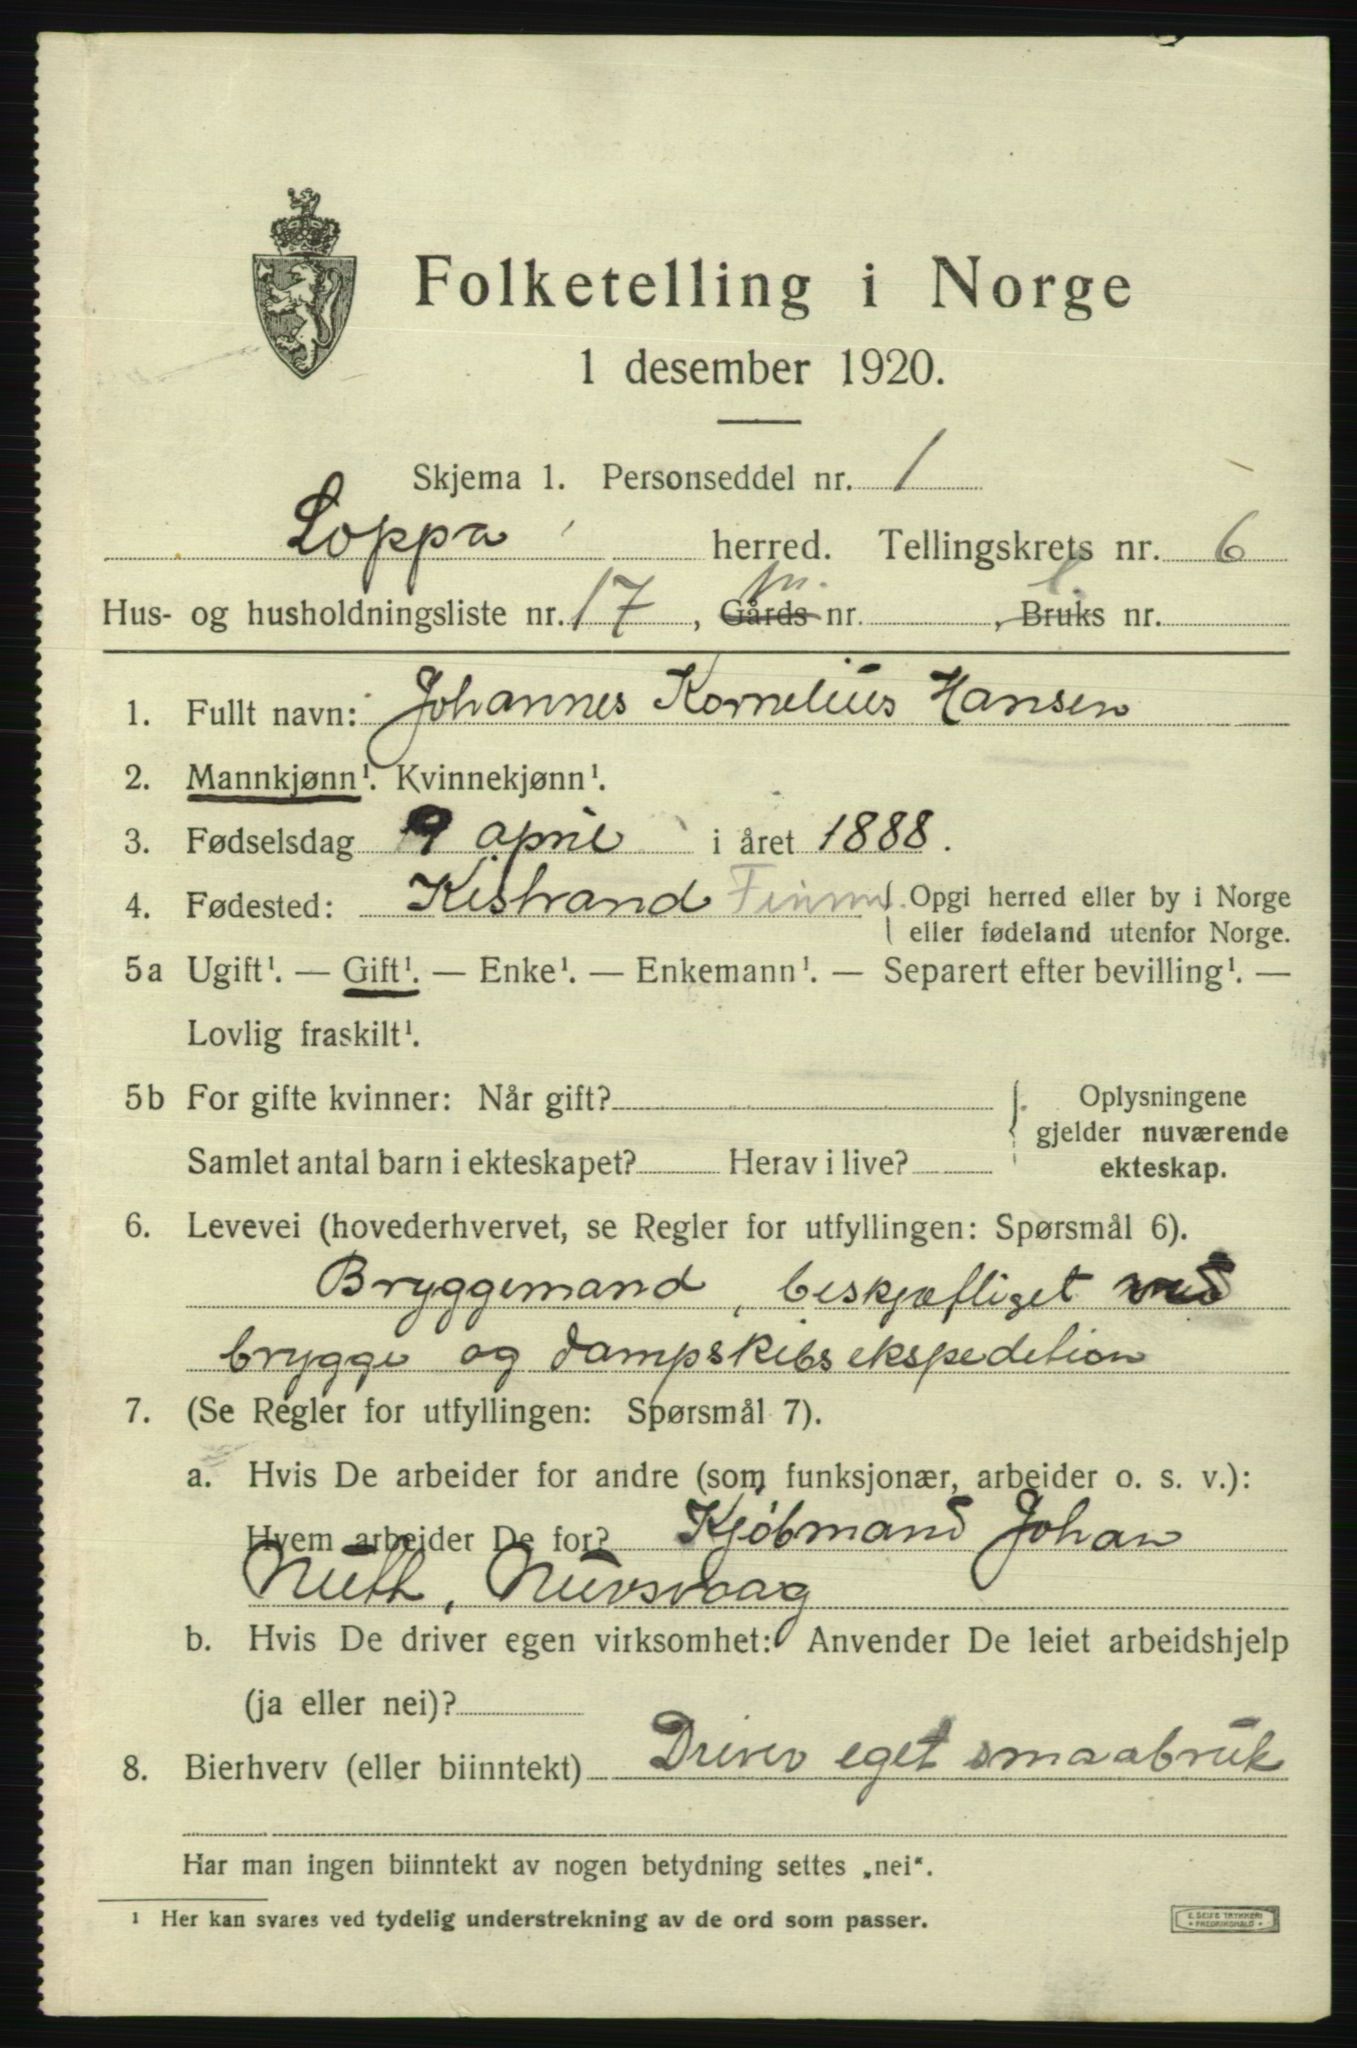 Folketelling i Norge
1 desember 1920.
Skjema 1. Personseddel nr. 1
Loppa herred. Tellingskrets nr. 6
Hus- og husholdningsliste nr. 17, Gårds nr. , Bruks nr.
1. Fullt navn: Johannes Kornelius Hansen
2. Mannkjønn¹. Kvinnekjønn¹.
3. Fødselsdag 9 april i året 1888.
4. Fødested: Kistrand Finnm. { Opgi herred eller by i Norge
eller fødeland utenfor Norge.
5a Ugift¹. — Gift¹. — Enke¹. — Enkemann¹. — Separert efter bevilling¹. —
Lovlig fraskilt¹.
5b For gifte kvinner: Når gift? { Oplysningene
gjelder nuværende
Samlet antal barn i ekteskapet? Herav i live? ekteskap.
6. Levevei (hovederhvervet, se Regler for utfyllingen: Spørsmål 6).
Bryggemand, beskjæftiget ved
brygge og dampskibsekspedition
7. (Se Regler for utfyllingen: Spørsmål 7).
a. Hvis De arbeider for andre (som funksjonær, arbeider o. s. v.):
Hvem arbeider De for? Kjøbmand Johan
Nuth, Nuvsvaag
b. Hvis De driver egen virksomhet: Anvender De leiet arbeidshjelp
(ja eller nei)?
8. Bierhverv (eller biinntekt) Driver eget smaabruk
Har man ingen biinntekt av nogen betydning settes „nei“.
¹ Her kan svares ved tydelig understrekning av de ord som passer.
E. SEIFE TRYKKERI
• FREDRIKSHALD •